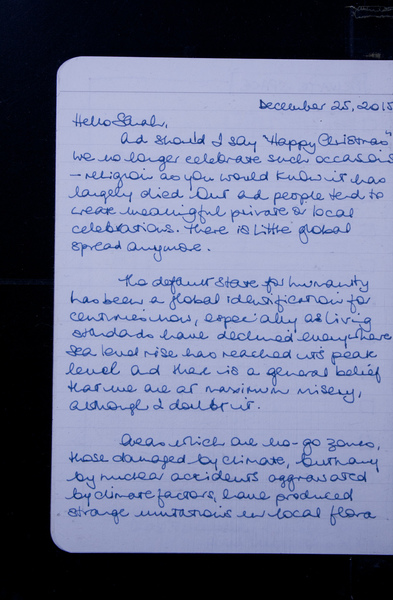 December 25, 2015
Hello Sarah,
And should I say "Happy Christmas"
We no longer celebrate such occasions
– religion as you would know it has
largely died out and people tend to
create meaningful private or local
celebrations. There is little global
spread anymore.
The default state for humanity
has been a global identification for
centuries now, especially as living
standards have declined everywhere
Sea level rise has reached its peak
level and there is a general belief
that we are at maximum misery,
although I doubt it.
Areas which are no-go zones,
those damaged by climate, but many
by nuclear accidents aggravated
by climate factors, have produced
strange mutations in local flora